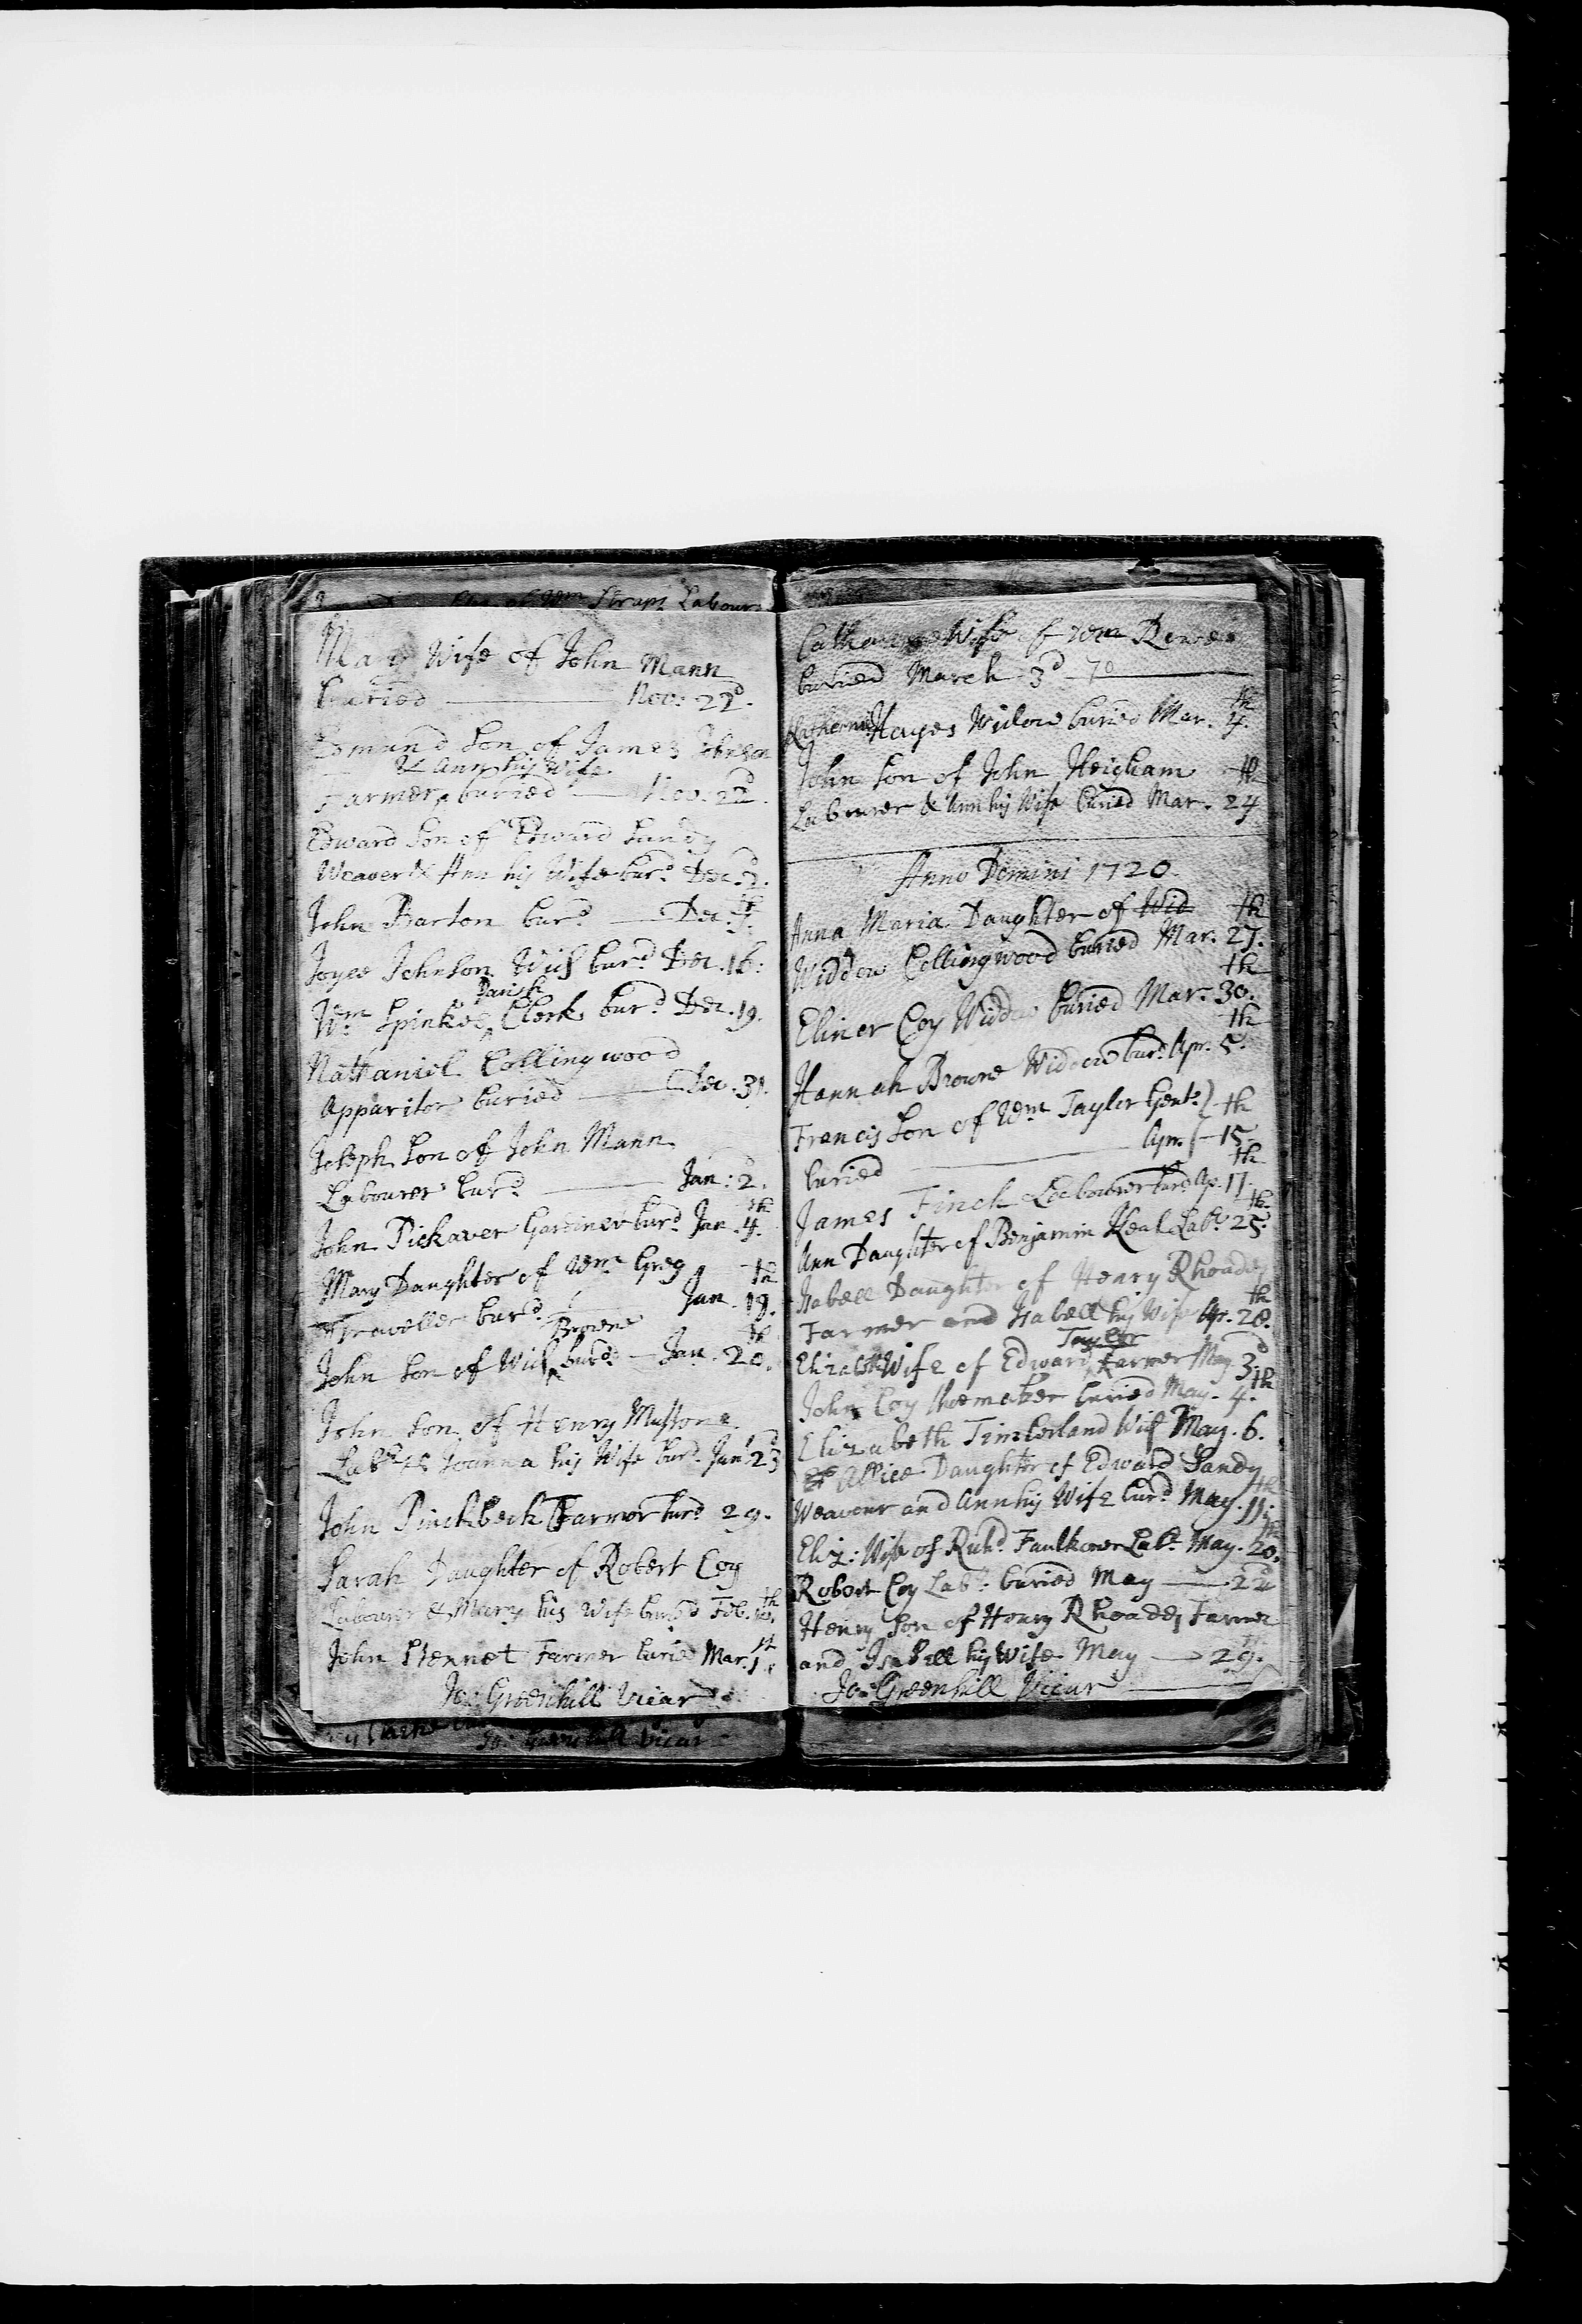 Wm Straps Labour
Mary Wife of John Mann
Buried Nov: 22d.
Edmund Son of James Johnson
& Ann his Wife
Farmer buried Nov. 22d.
Edward Son of Edward Sandy
Weaver & Ann his Wife burd. Dec. 2.
John Barton burd. Dec.
Joyce Johnson Wid burd Dec. 16:
Parish
Wm Spinkes Clerk burd Dec. 19.
Nathaniel Collingwood
Apparitor buried Dec. 31.
Joseph Son of John Mann
Labourer burd Jan: 2d.
John Pickaver Gardiner burd Jan. 4th.
Mary Daughter of Wm Greg
Traveller burd. Jan. 19th.
Browne
John Son of Wid burd Jan. 20th.
John Son of Henry Mussons
Labr & Joanna his Wife burd. Jan 23d
John Pinchbeck Farmer burd 29.
Sarah Daughter of Robert Coy
Labourer & Mary his Wife burd Feb. th
John Hennet Farmer buried Mar. 1st
Jo: Greenhill Vicar
Jo: Greenhill Vicar
Catherine Wife of Wm
buried March 3d
Katherine Hayes Widow buried Mar. 4th.
John Son of John Heigham
Labourer & Ann his Wife buried Mar. 24th
Anno Domini 1720
Anna Maria Daughter of Wid
Widdow Collingwood buried Mar. 27th.
Elinor Coy Widdow buried Mar. 30th.
Hannah Browne Widdow burd. Apr. 5th.
Francis Son of Wm Tayler Gent.
buried Apr. 15th
James Finch Labourer burd Ap. 17th.
Ann Daughter of Benjamin Keal Labr. 25th.
Isabell Daughter of Henry Rhoades
Farmer and Isabell his Wife Ap. 28th.
Tayler
Elizabth Wife of Edward Farmer May. 3d
John Coy Shoemaker buried May. 4th.
Elizabeth Timberland Wid May. 6.
Allice Daughter of Edward Sandy
Weavour and Ann his Wife burd May. 11th.
Eliz: Wife of Richd. Faulkener Labr. May. 20th.
Robert Coy Labr. buried May 22d
Henry Son of Henry Rhoades Farmer
and Isabell his Wife May 29th.
Jo: Greenhill Vicar